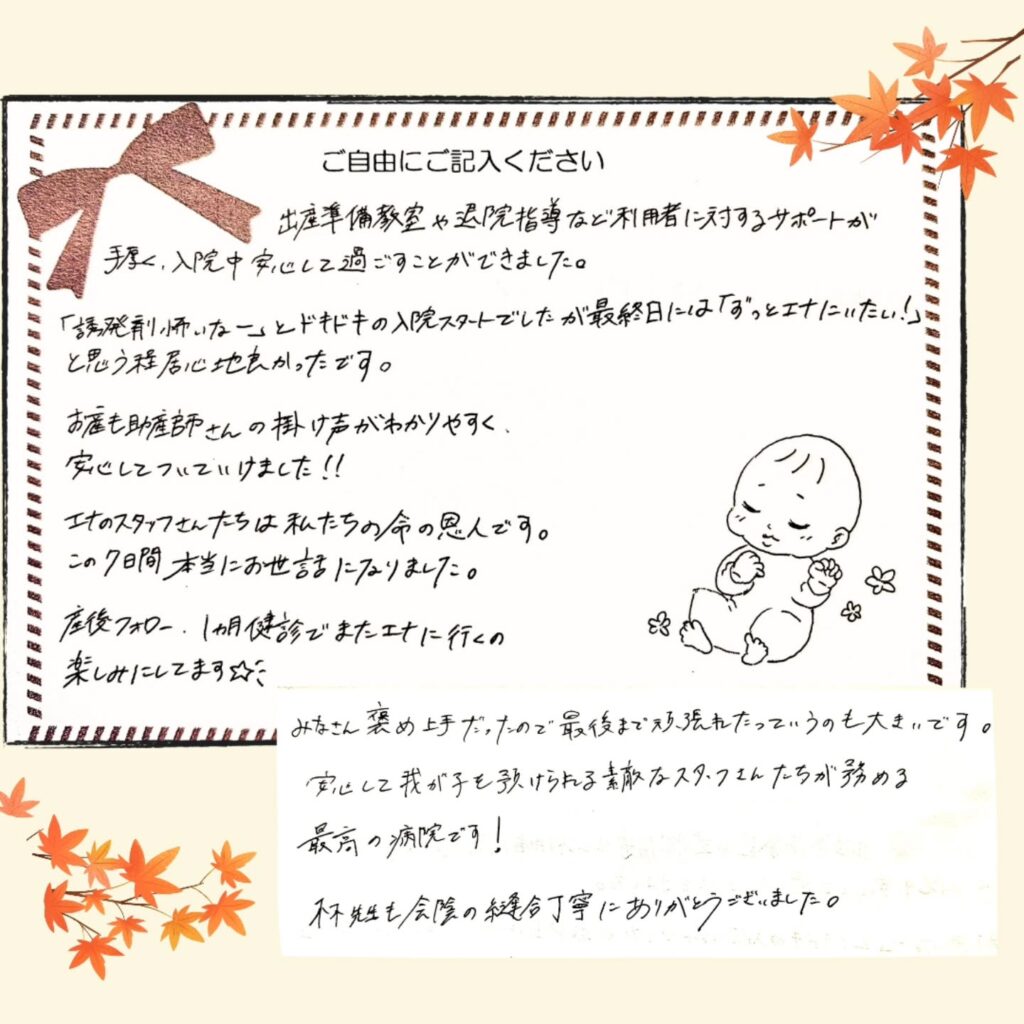 ご自由にご記入ください
出産準備教室や退院指導など利用者に対するサポートが
手厚く、入院中安心して過ごすことができました。
「誘発剤怖いなー」とドキドキの入院スタートでしたが最終日には「ずっとエナにいたい！」
と思う程居心地良かったです。
お産も助産師さんの掛け声がわかりやすく、
安心してついていけました!!
エナのスタッフさんたちは私たちの命の恩人です。
この7日間本当にお世話になりました。
産後フォロー、1ヵ月健診でまたエナに行くの
楽しみにしてます☆
みなさん褒め上手だったので最後まで頑張れたっていうのも大きいです。
安心して我が子を預けられる素敵なスタッフさんたちが務める
最高の病院です！
林先生も会陰の縫合丁寧にありがとうございました。